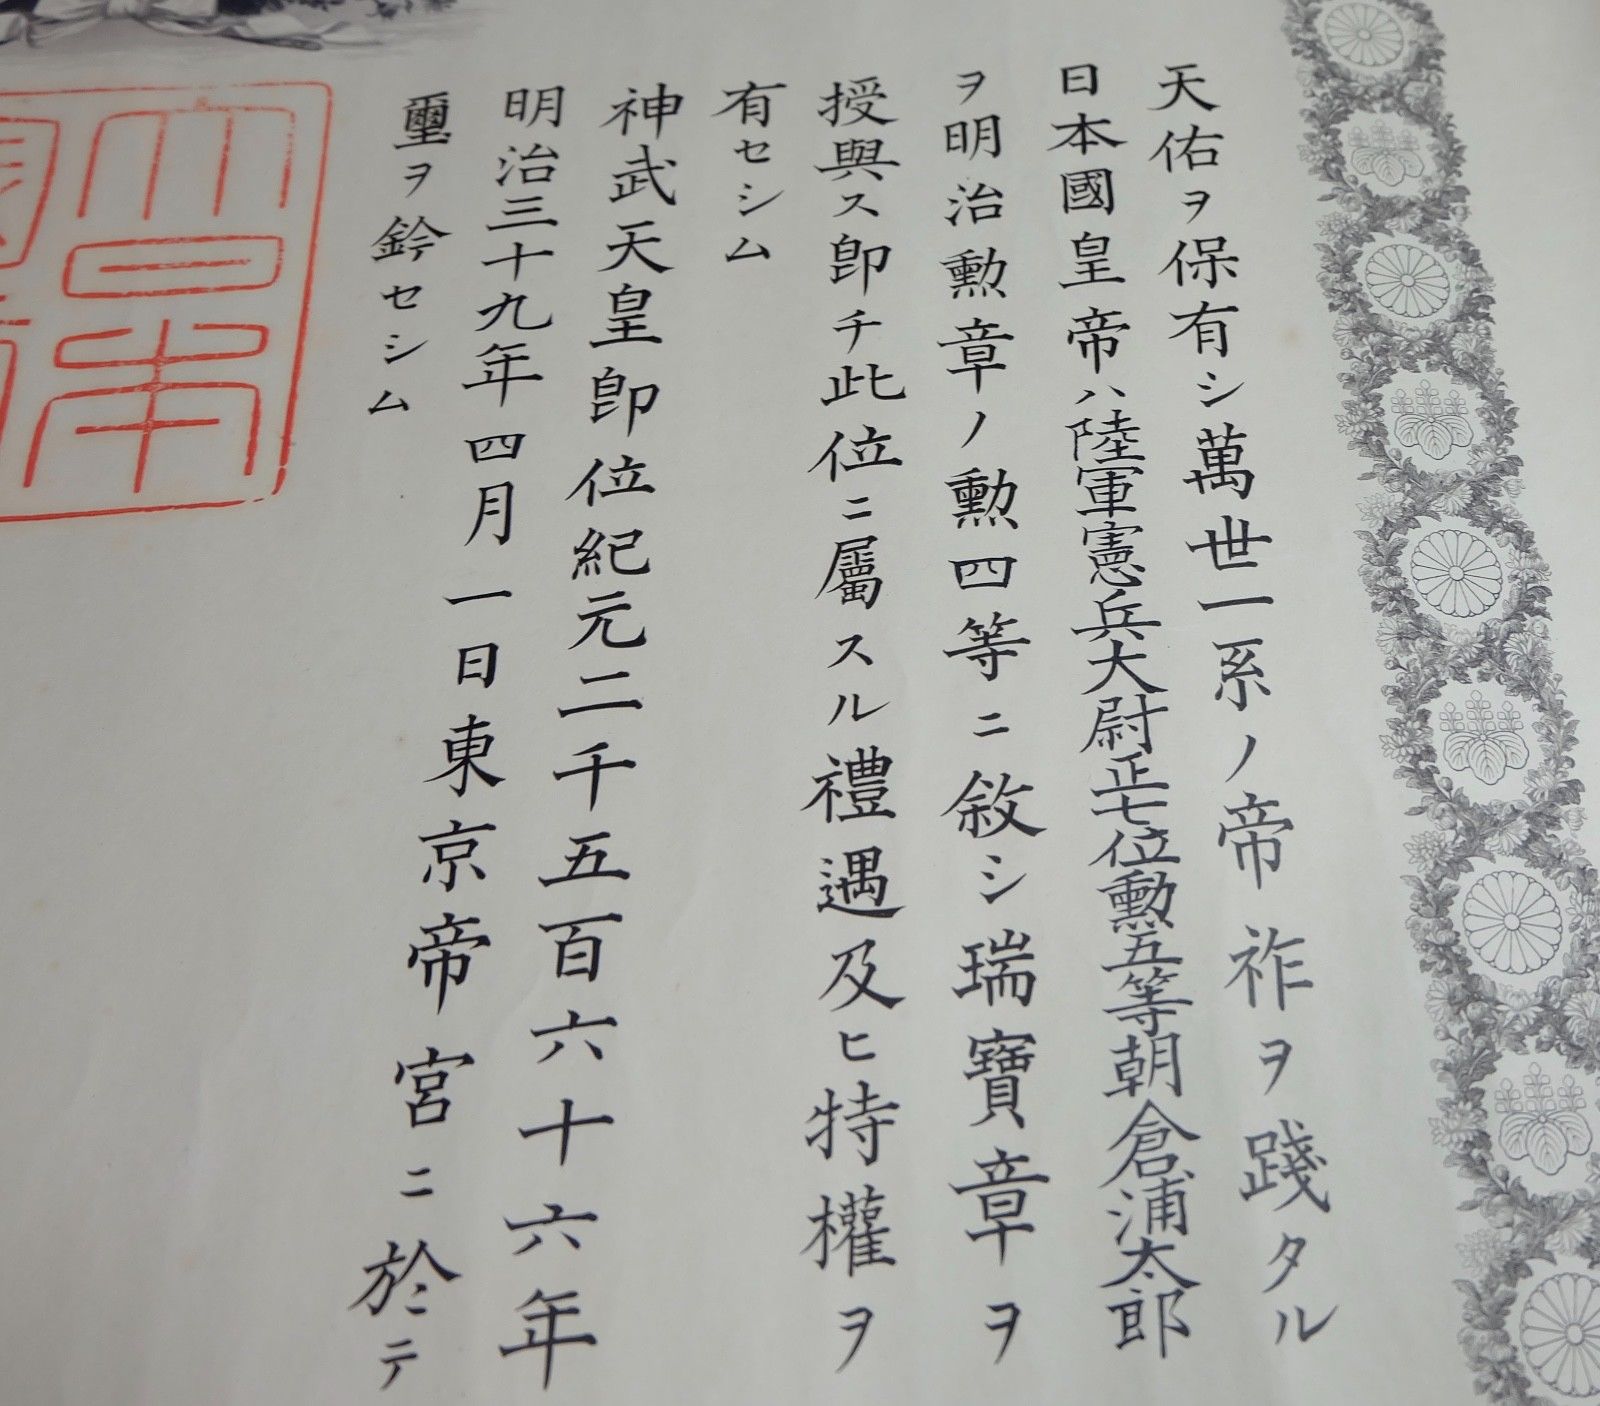 天佑ヲ保有シ萬世一系ノ帝祚ヲ踐タル
日本國皇帝ハ陸軍憲兵大尉正七位勲五等朝倉浦太郎
ヲ明治勲章ノ勲四等ニ敘シ瑞寶章ヲ
授與ス卽チ此位ニ屬スル禮遇及ヒ特權ヲ
有セシム
神武天皇卽位紀元二千五百六十六年
明治三十九年四月一日東京帝宮ニ於テ
璽ヲ鈐セシム
日本